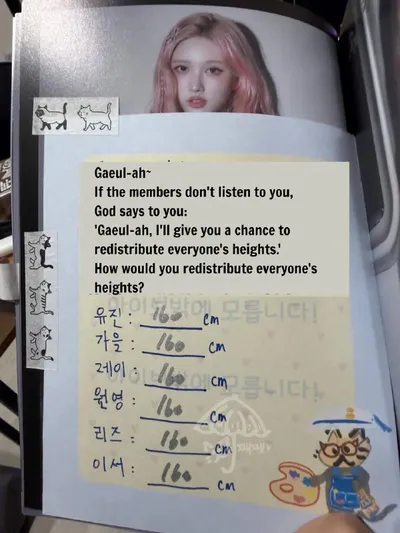 Gaeul-ah~
If the members don't listen to you,
God says to you:
'Gaeul-ah, I'll give you a chance to
redistribute everyone's heights.'
How would you redistribute everyone's
heights?
아이브밖에 모릅니다!
유진 : 160 cm
가을 : 160 cm
레이 : 160 cm
아이브밖에 모릅니다!
원영 : 160 cm
리즈 : 160 cm
이서 : 160 cm